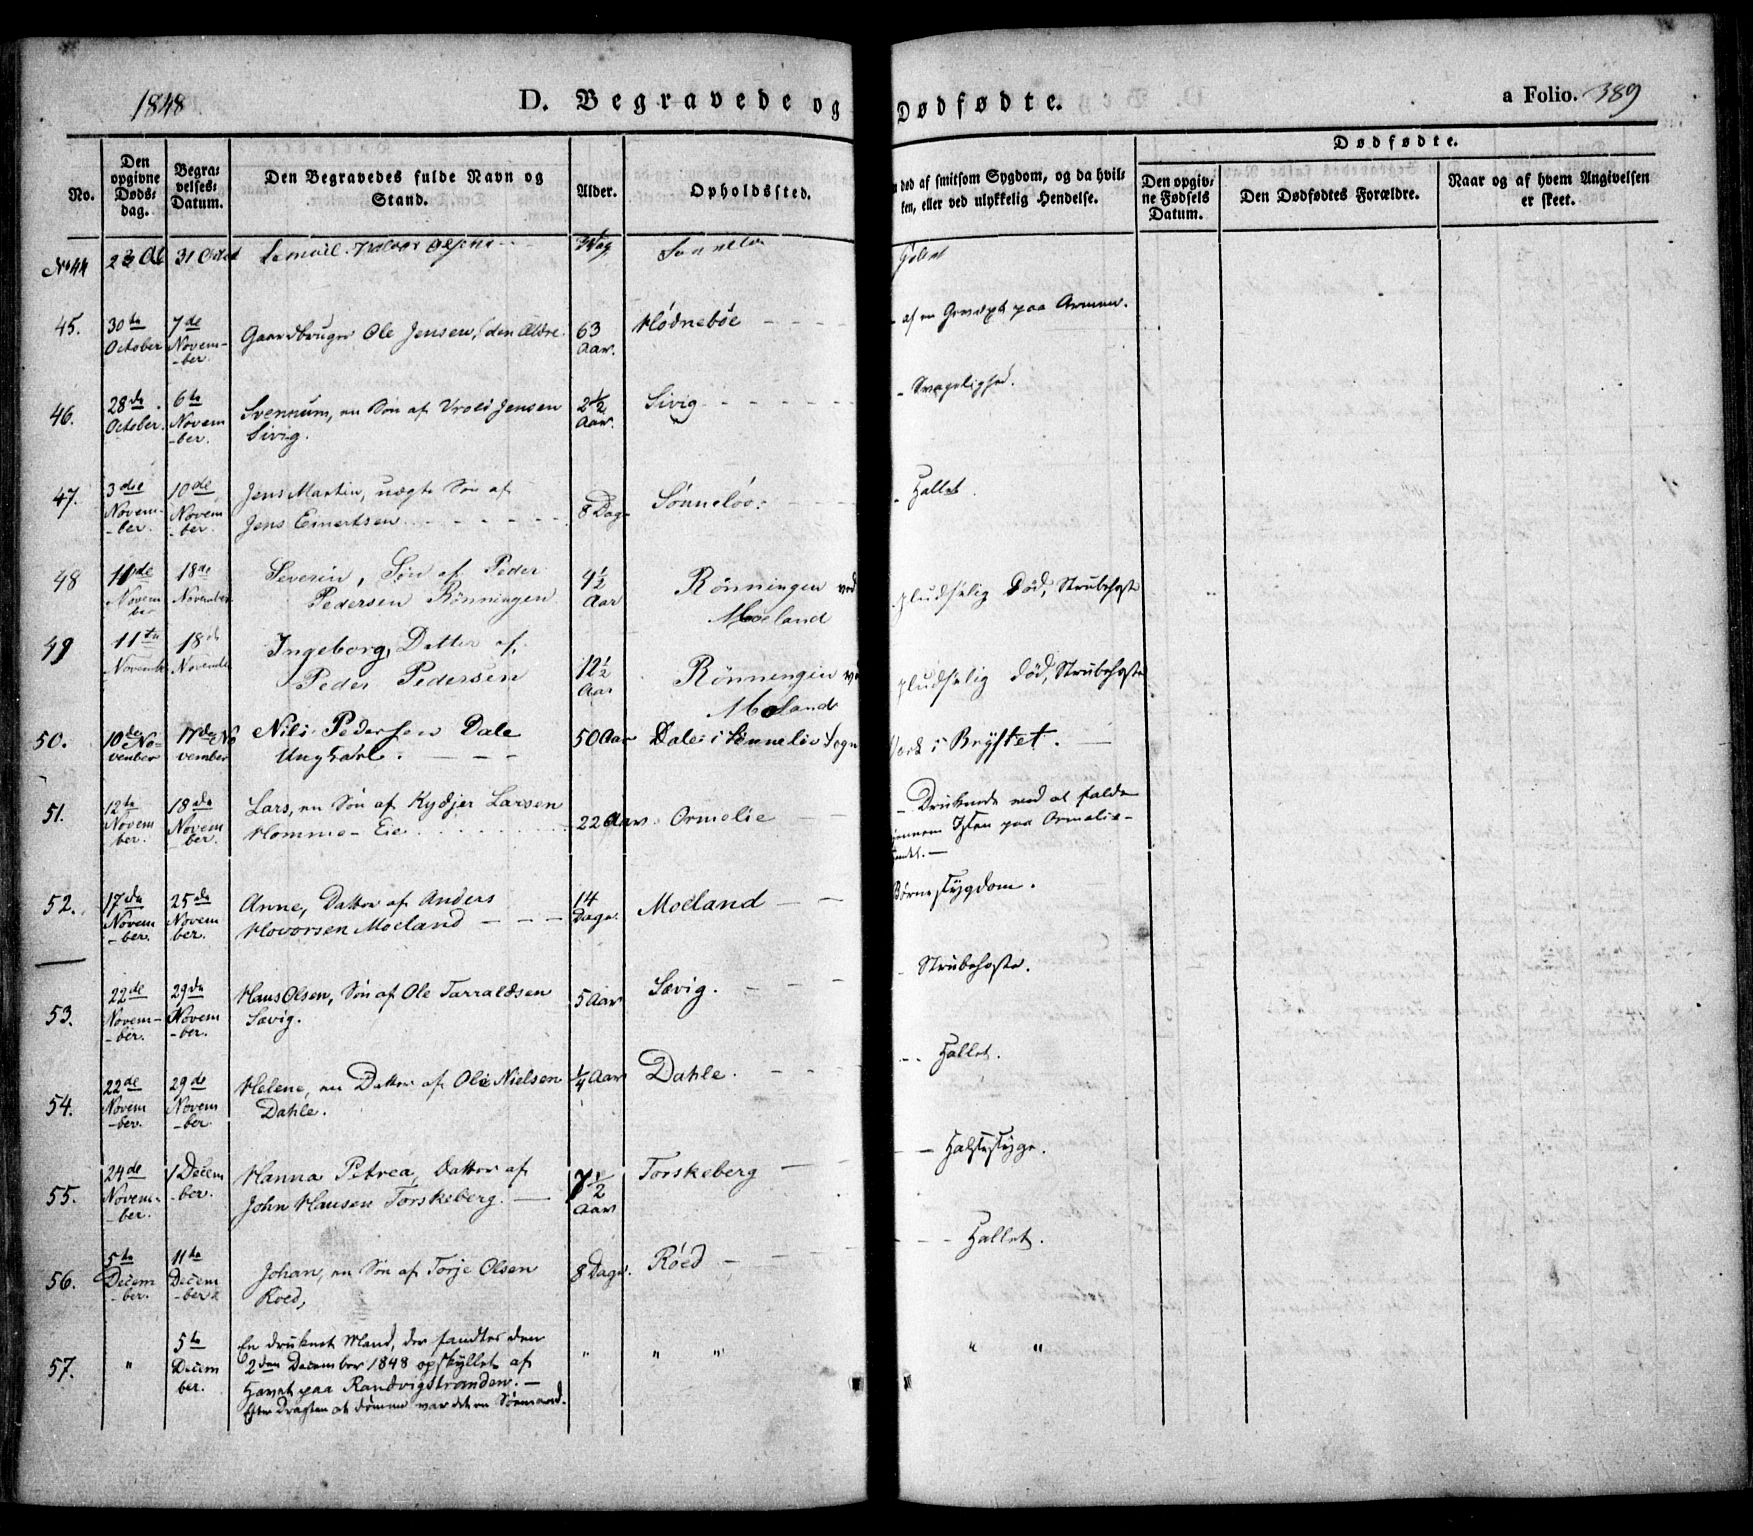 1848
D. Begravede og Dødfødte.
a Folio. 389
No.
Den opgivne Dødsdag.
Begravelses-Datum.
Den Begravedes fulde Navn og Stand.
Alder.
Opholdssted.
død af smitsom Sygdom, og da hvilken, eller ved ulykkelig Hendelse.
Dødfødte.
Den opgivne Fødsels Datum.
Den Dødfødtes Forældre.
Naar og af hvem Angivelsen er skeet.
No 44
31 Octob
45.
30te October
7de November.
Gaardbruger Ole Jensen, (den Ældre.
63 Aar.
Hødnebøe
paa Armen.
46.
28de October.
6te November.
Svennum, en Søn af Jensen
Sivig.
2½ Aar.
Sivig
Svagelighed.
47.
3die November.
10de November.
Jens Martin, uægte Søn af
Jens Einertsen
8 Dag
Sønneløv
Hallet.
48
11de November
18de November
Severin, Søn af Peder
Pedersen Rönningen
4½ Aar
Rönningen ved
Moeland
pludselig Död, Strubehoste
49
11te November
18de November
Ingeborg, Datter af,
Peder Pedersen
12½ Aar
Rönningen ved
Moland
pludselig död, Strubehoste
50.
10de November
17de November
Nils Pedersen Dale
Ungkarl.
50 Aar
Dale i Sønneløv Sogn
i Brystet.
51.
12te November.
18de November.
Lars, en Søn af Larsen
Homme-Eie
22 Aar
Ormelie
Druknede ved at falde
gjennem Isen paa Ormelie-
vandet.
52.
17de November.
25de November.
Anne, Datter af Anders
Hovorsen Moeland
14 Dage.
Moeland
Børnesygdom.
53.
22de November.
29de November.
Hans Olsen, Søn af Ole Tarraldsen
Sævig.
5 Aar
Sævig.
Strubehoste.
54.
22de November.
29de November.
Helene, en Datter af Ole Nielsen
Dahle.
¼ Aar
Dahle.
Hallet.
55.
24de November.
1 December.
Hanna Petrea, Datter af
John Hansen Torskeberg.
7½ Aar
Torskeberg
Halssyge.
56.
5te December.
11te December
Johan, en Søn af Torje Olsen
Roed,
8 Dage.
Röed
Hallet.
57.
"
5te December.
En druknet Mand, der fandtes den
2den December 1848 opskyllet af
Havet paa Randvigstranden.
Efter Dragten at dømme var det en Sømand.
"
" "
" "